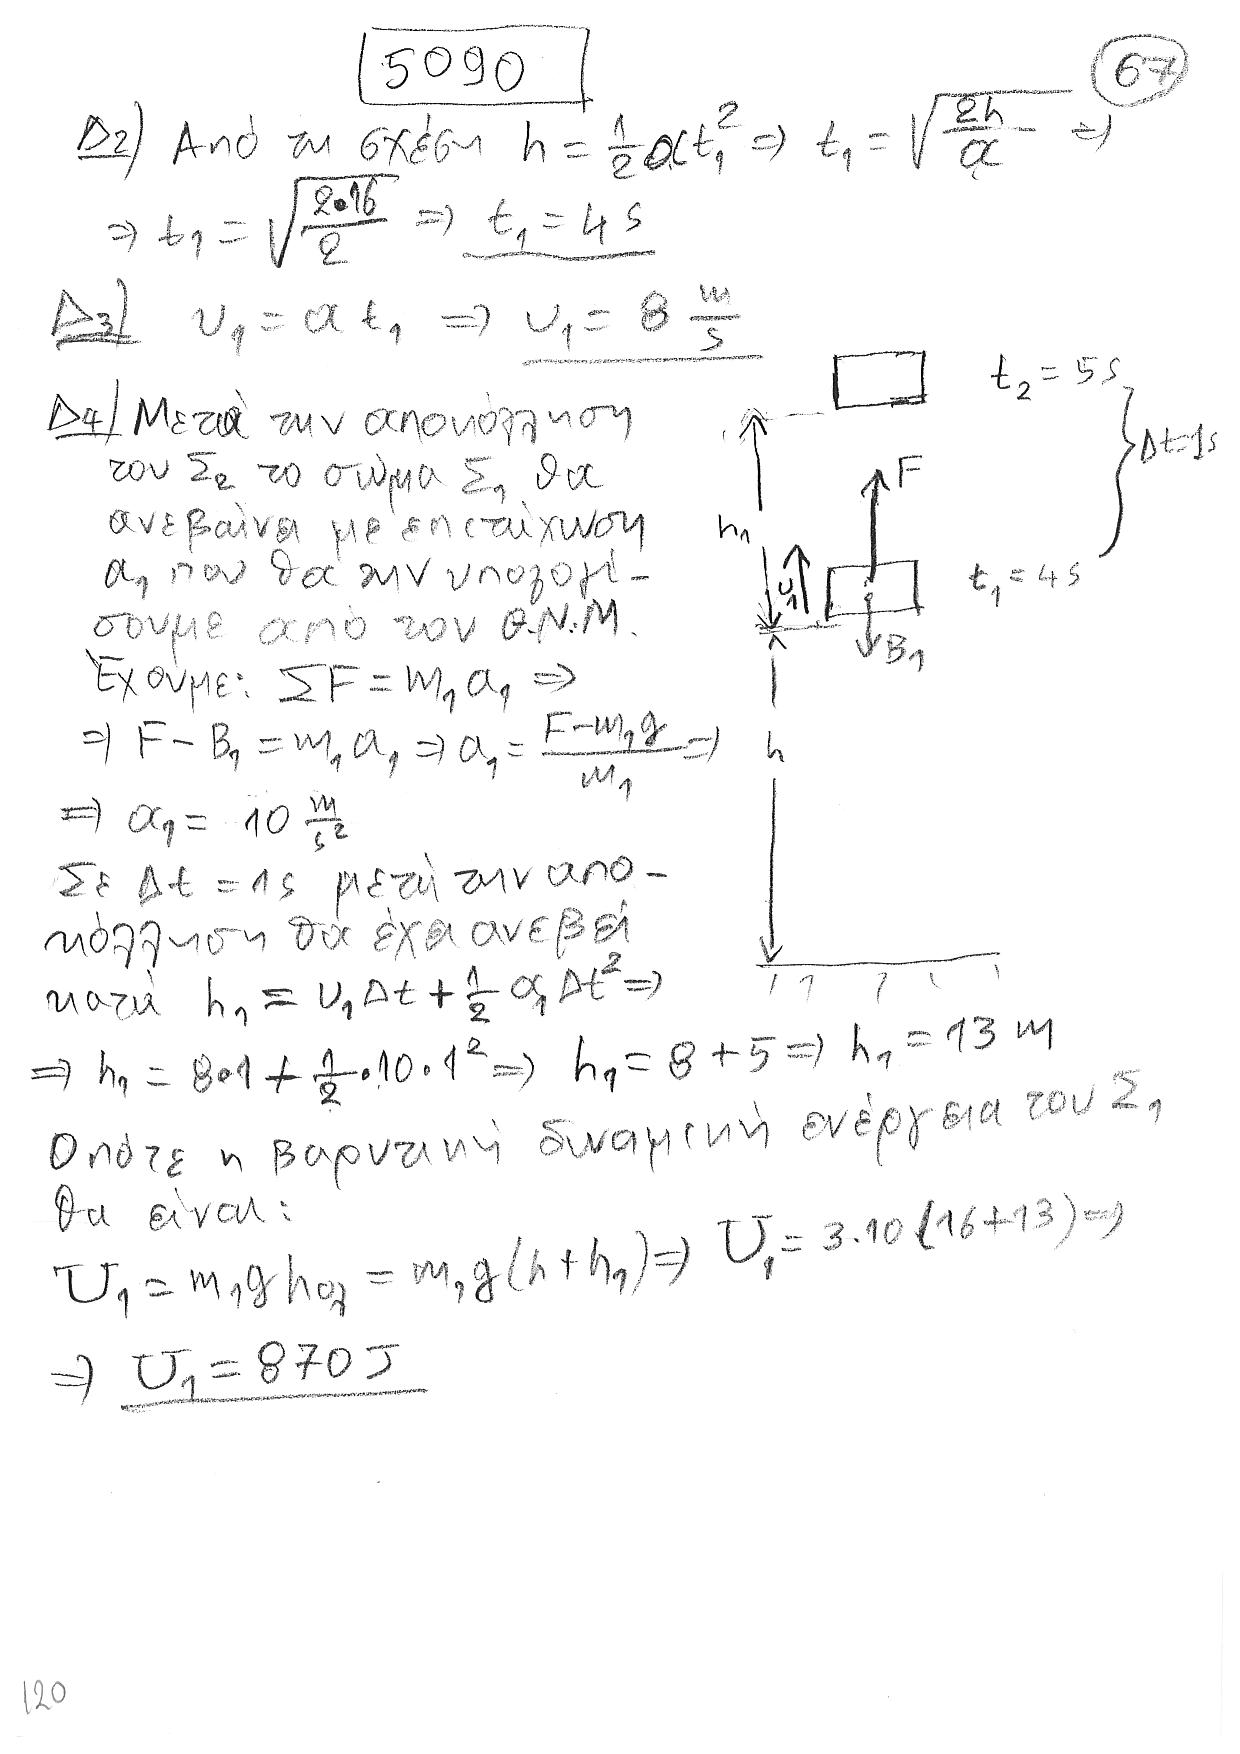 5090
67
Δ2) Από τη σχέση h = 1/2 αt₁² ⇒ t₁ = √(2h/α) ⇒
⇒ t₁ = √(2·16/2) ⇒ t₁ = 4 s
Δ3) υ₁ = α t₁ ⇒ υ₁ = 8 m/s
Δ4) Μετά την αποκόλληση
του Σ₂ το σώμα Σ₁ θα
ανεβαίνει με επιτάχυνση
α₁ που θα την υπολογί-
σουμε από τον Θ.Ν.Μ.
Έχουμε: ΣF = m₁α₁ ⇒
⇒ F - B₁ = m₁α₁ ⇒ α₁ = (F-m₁g)/m₁ ⇒
⇒ α₁ = 10 m/s²
Σε Δt = 1s μετά την απο-
κόλληση θα έχει ανεβεί
κατά h₁ = υ₁Δt + 1/2 α₁Δt² ⇒
⇒ h₁ = 8·1 + 1/2·10·1² ⇒ h₁ = 8 + 5 ⇒ h₁ = 13 m
Οπότε η βαρυτική δυναμική ενέργεια του Σ₁
θα είναι:
U₁ = m₁g hολ = m₁g(h+h₁) ⇒ U₁ = 3·10 (16+13) ⇒
⇒ U₁ = 870 J
t₂ = 5s
Δt=1s
F
h₁
υ₁
t₁ = 4s
B₁
h
120